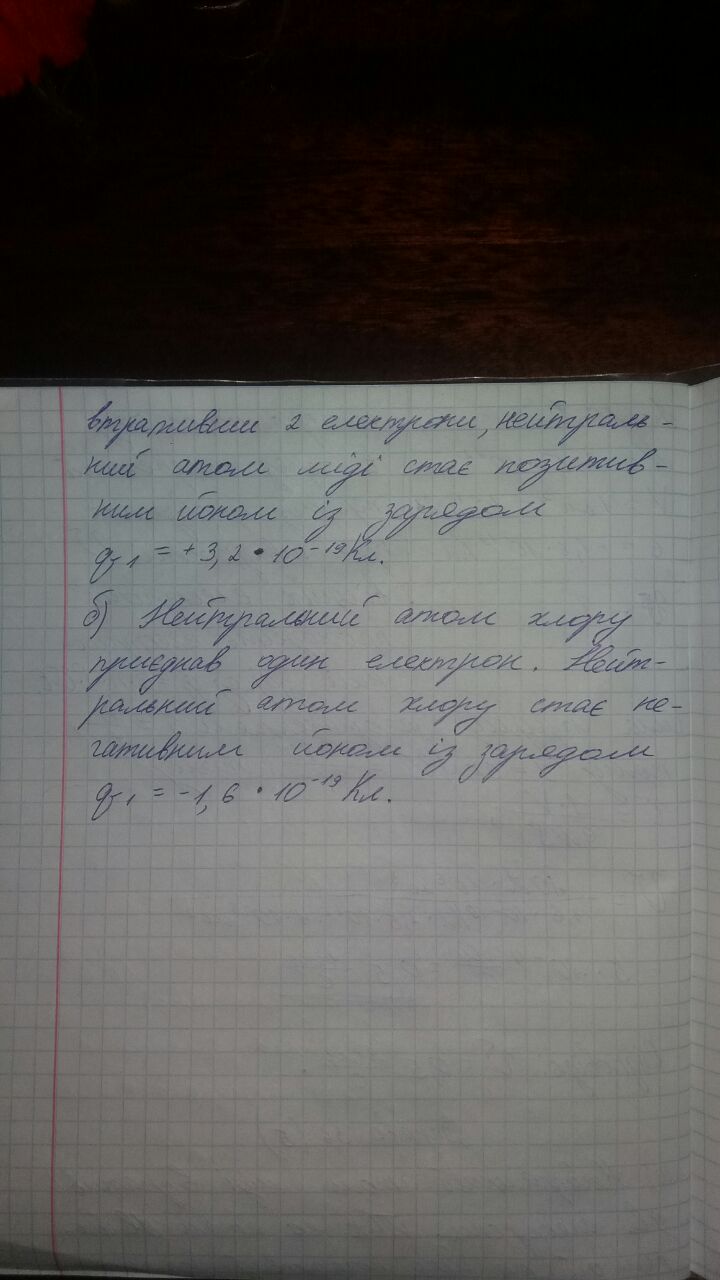 втративши 2 електрони, нейтраль-
ний атом міді стає позитив-
ним йоном із зарядом
q₁ = + 3,2 • 10⁻¹⁹ Кл.
б) Нейтральний атом хлору
приєднав один електрон. Нейт-
ральний атом хлору стає не-
гативним йоном із зарядом
q₁ = -1,6 • 10⁻¹⁹ Кл.